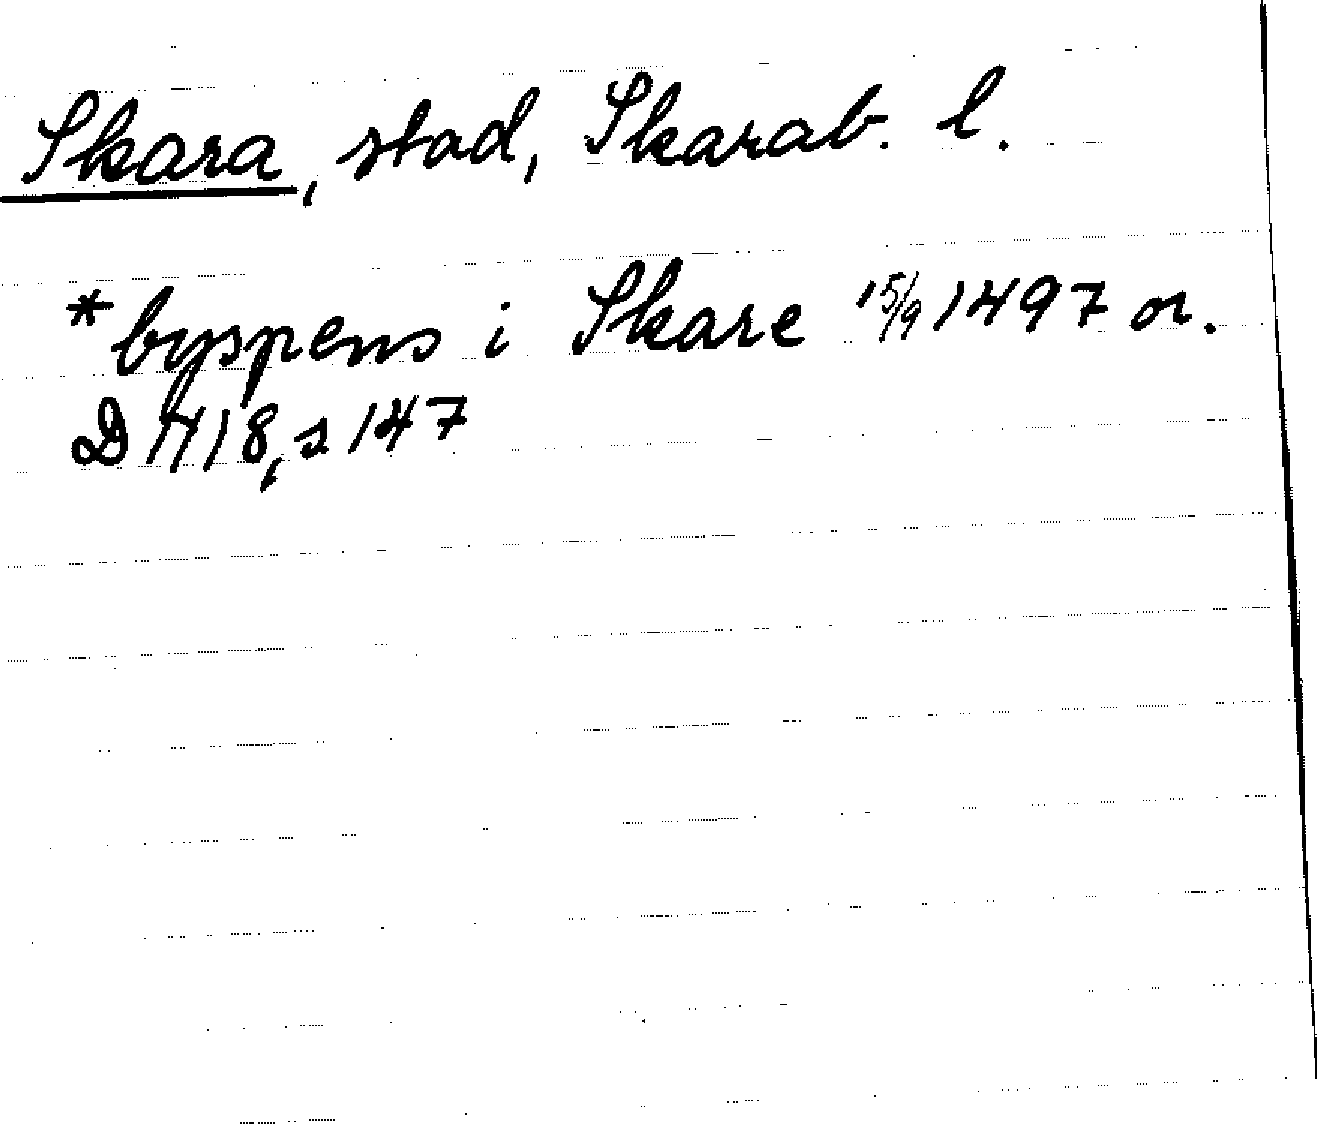 Skara, stad, Skarab. l.
*byspens i Skare 15/9 1497 or.
D N 18, s 147